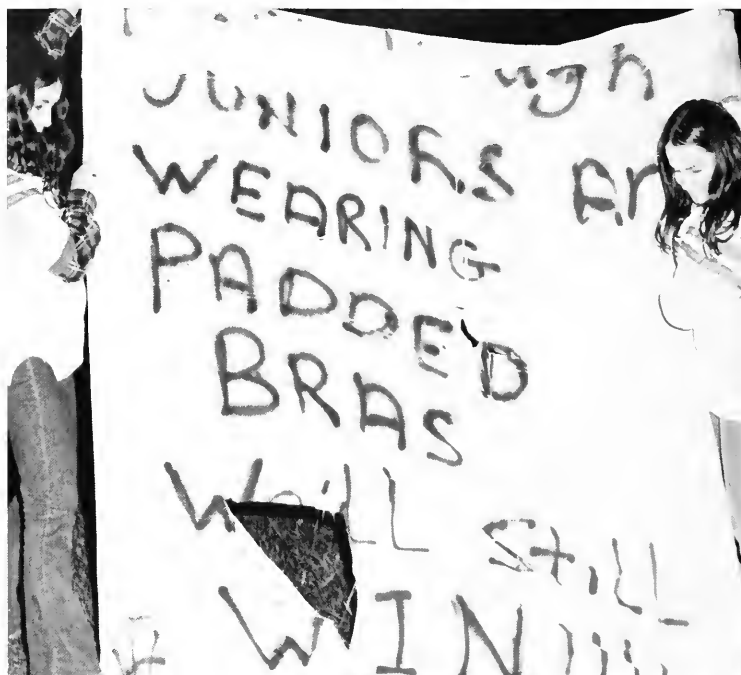 JUNIORS
WEARING
PADDED
BRAS
We'LL Still
WIN!!!!